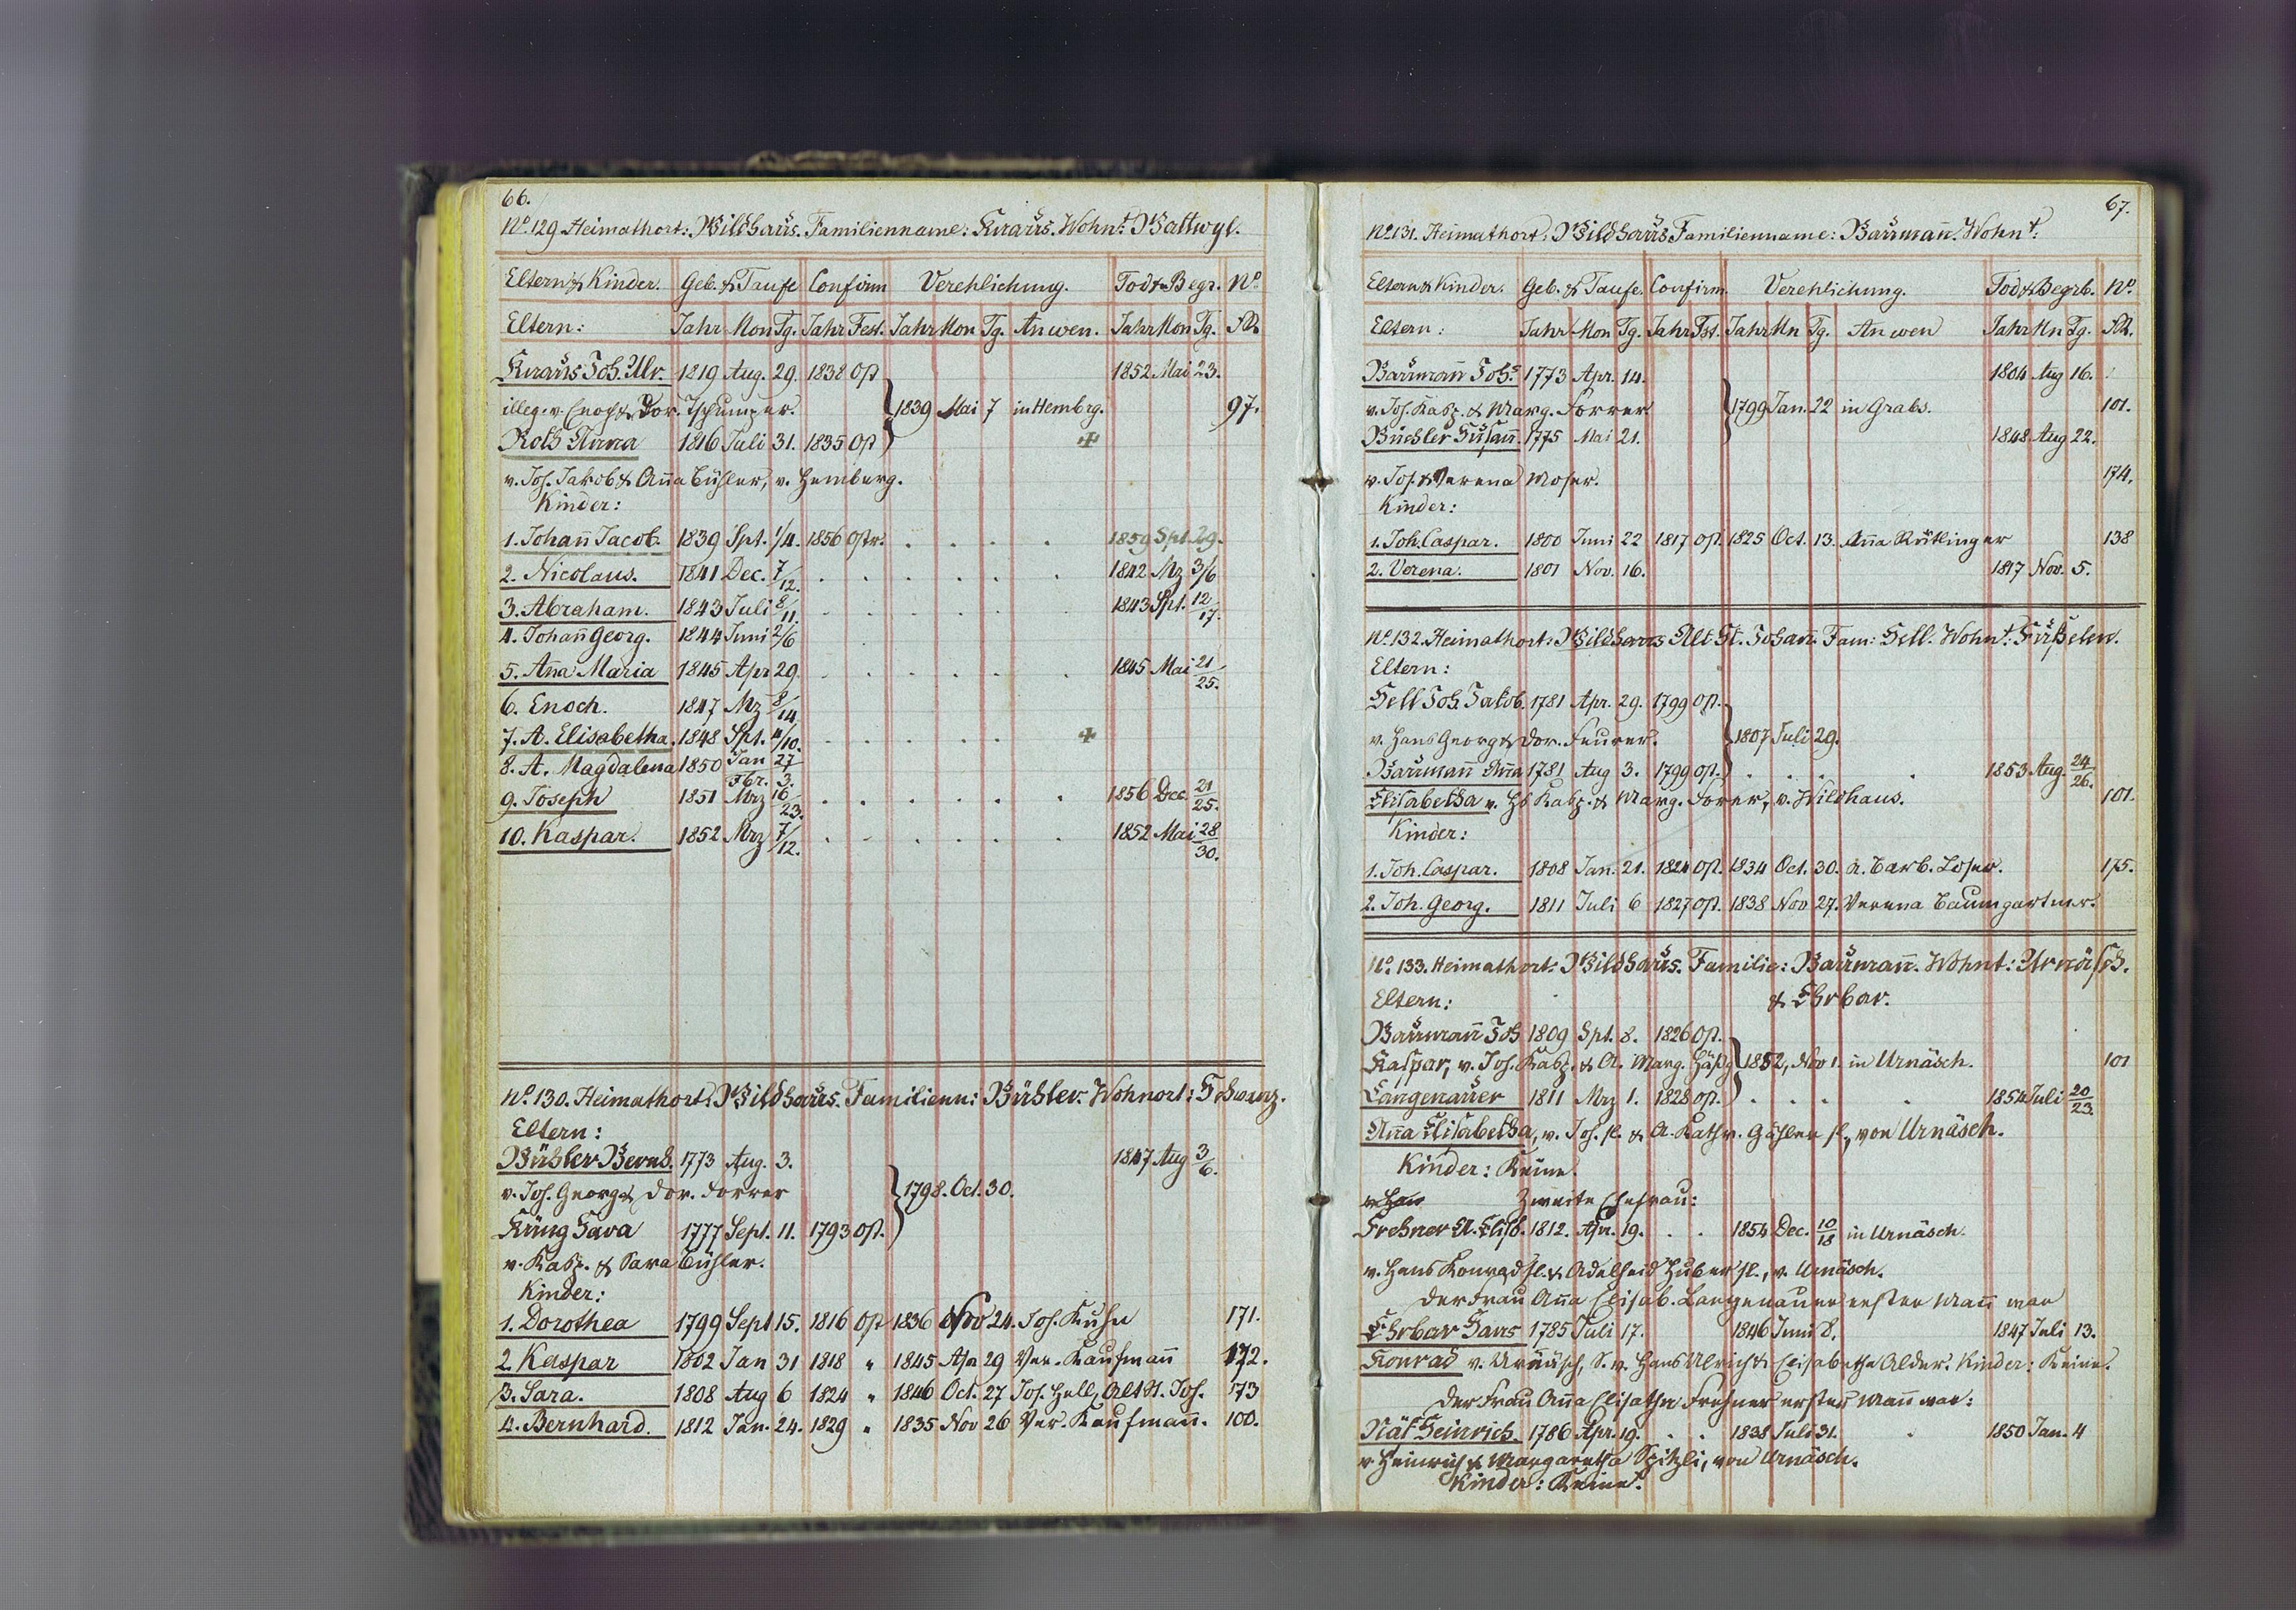 66.
No. 129 Heimathort: Wildhaus. Familienname: Knaus. Wohnt: Wattwyl.
Eltern & Kinder. Geb. & Taufe Confirm Verehlichung. Tod & Begr. No.
Eltern: Jahr Mon Tg. Jahr Fest. Jahr Mon Tg. An wen. Jahr Mon Tg.
Knaus Joh. Ulr. 1819 Aug. 29. 1838 Ost 1852 Mai 23.
illeg. v. Enoch & Dor. Tschumper. } 1839 Mai 7 in Hembrg. 97.
Roth Anna 1816 Juli 31. 1835 Ost +
v. Joh. Jakob & Anna Bühler, v. Hemberg.
Kinder:
1. Johan̄ Jacob. 1839 Spt. 1/4. 1856 Ostr. . . . . 1859 Spt. 29.
2. Nicolaus. 1841 Dec. 7/12. . . . . . . 1842 Mz 3/6
3. Abraham. 1843 Juli 8/11. . . . . . . 1843 Spt. 12/17.
4. Johan̄ Georg. 1844 Juni 2/6
5. An̄a Maria 1845 Apr 29. . . . . . . 1845 Mai 21/25.
6. Enoch. 1847 Mz 8/14
7. A. Elisabetha. 1848 Spt. 4/10. . . . . . +
8. A. Magdalena 1850 Jan 27 Fbr. 3.
9. Joseph 1851 Mrz 16/23. . . . . . . 1856 Dec. 21/25.
10. Kaspar. 1852 Mrz 7/12. . . . . . . 1852 Mai 28/30.
No. 130. Heimathort: Wildhaus. Familienn: Bühler. Wohnort: Schwarz.
Eltern:
Bühler Bernh. 1773 Aug. 3. 1847 Aug 3/6.
v. Joh. Georg & Dor. Forrer } 1798. Oct. 30.
Küng Sara 1777 Sept. 11. 1793 Ost.
v. Kasp. & Sara Bühler.
Kinder:
1. Dorothea 1799 Sept 15. 1816 Ost 1836 Nov 24. Joh. Kuhn 171.
2. Kaspar 1802 Jan 31 1818 " 1845 Apr 29 Ver. Kaufman̄ 172.
3. Sara. 1808 Aug 6 1824 " 1846 Oct. 27 Joh. Hell, Alt St. Joh. 173
4. Bernhard. 1812 Jan. 24. 1829 " 1835 Nov 26 Ver. Kaufman̄. 100.
67.
No. 131. Heimathort: Wildhaus Familienname: Bauman̄. Wohnt:
Eltern & Kinder. Geb. & Taufe. Confirm. Verehlichung. Tod & Begrb. No.
Eltern: Jahr Mon Tg. Jahr Fst. Jahr Mn Tg. An wen Jahr Mn Tg.
Bauman̄ Johs. 1773 Apr. 14. 1804 Aug 16.
v. Joh. Kasp. & Marg. Forrer } 1799 Jan. 22 in Grabs. 101.
Büchler Susan̄. 1775 Mai 21. 1848 Aug 22.
v. Joh. & Verena Moser. 174.
Kinder:
1. Joh. Caspar. 1800 Juni 22 1817 Ost. 1825 Oct. 13. An̄a Rütlinger 138
2. Verena. 1801 Nov. 16. 1817 Nov. 5.
No. 132. Heimathort: Wildhaus Alt St. Johan̄. Fam: Hell. Wohnt: Fußelen.
Eltern:
Hell Joh. Jakob. 1781 Apr. 29. 1799 Ost.
v. Hans Georg & Dor. Feurer. } 1807 Juli 29.
Bauman̄ An̄a 1781 Aug 3. 1799 Ost. . . . . 1853 Aug. 24/26.
Elisabetha v. Hs Kasp. & Marg. Forer, v. Wildhaus. 101.
Kinder:
1. Joh. Caspar. 1808 Jan. 21. 1824 Ost. 1834 Oct. 30. A. Barb. Loser. 175.
2. Joh. Georg. 1811 Juli 6 1827 Ost. 1838 Nov 27. Verena Baumgartner.
No. 133. Heimathort: Wildhaus. Familie: Bauman̄. Wohnt: Urnäsch.
Eltern: & Ehrbar.
Bauman̄ Joh 1809 Spt. 8. 1826 Ost.
Kaspar, v. Joh. Kasp. & A. Marg. } 1852, Nov 1. in Urnäsch. 101
Langenauer 1811 Mrz 1. 1828 Ost. . . . . 1854 Juli 20/23.
An̄a Elisabetha, v. Joh. sl. & A. Kathr. Gähler sl., von Urnäsch.
Kinder: Keine.
v. Han Zweite Ehefrau:
Frehner A. Elisb. 1812. Apr. 19. . . 1854 Dec. 10/18 in Urnäsch.
v. Hans Konrad sl. & Adelheid Huber sl., v. Urnäsch.
Der Frau An̄a Elisab. Langenauer erster Man̄ war
Ehrbar Hans 1785 Juli 17. 1846 Juni 8. 1847 Juli 13.
Konrad v. Urnäsch, S. v. Hans Ulrich & Elisabetha Alder. Kinder: Keine.
Der Frau An̄a Elisatha Frehner erster Man̄ war:
Näf Heinrich. 1786 Apr. 19. . . 1838 Juli 31. . 1850 Jan. 4
v. Heinrich & Margaretha Spitzli, von Urnäsch.
Kinder: Keine.